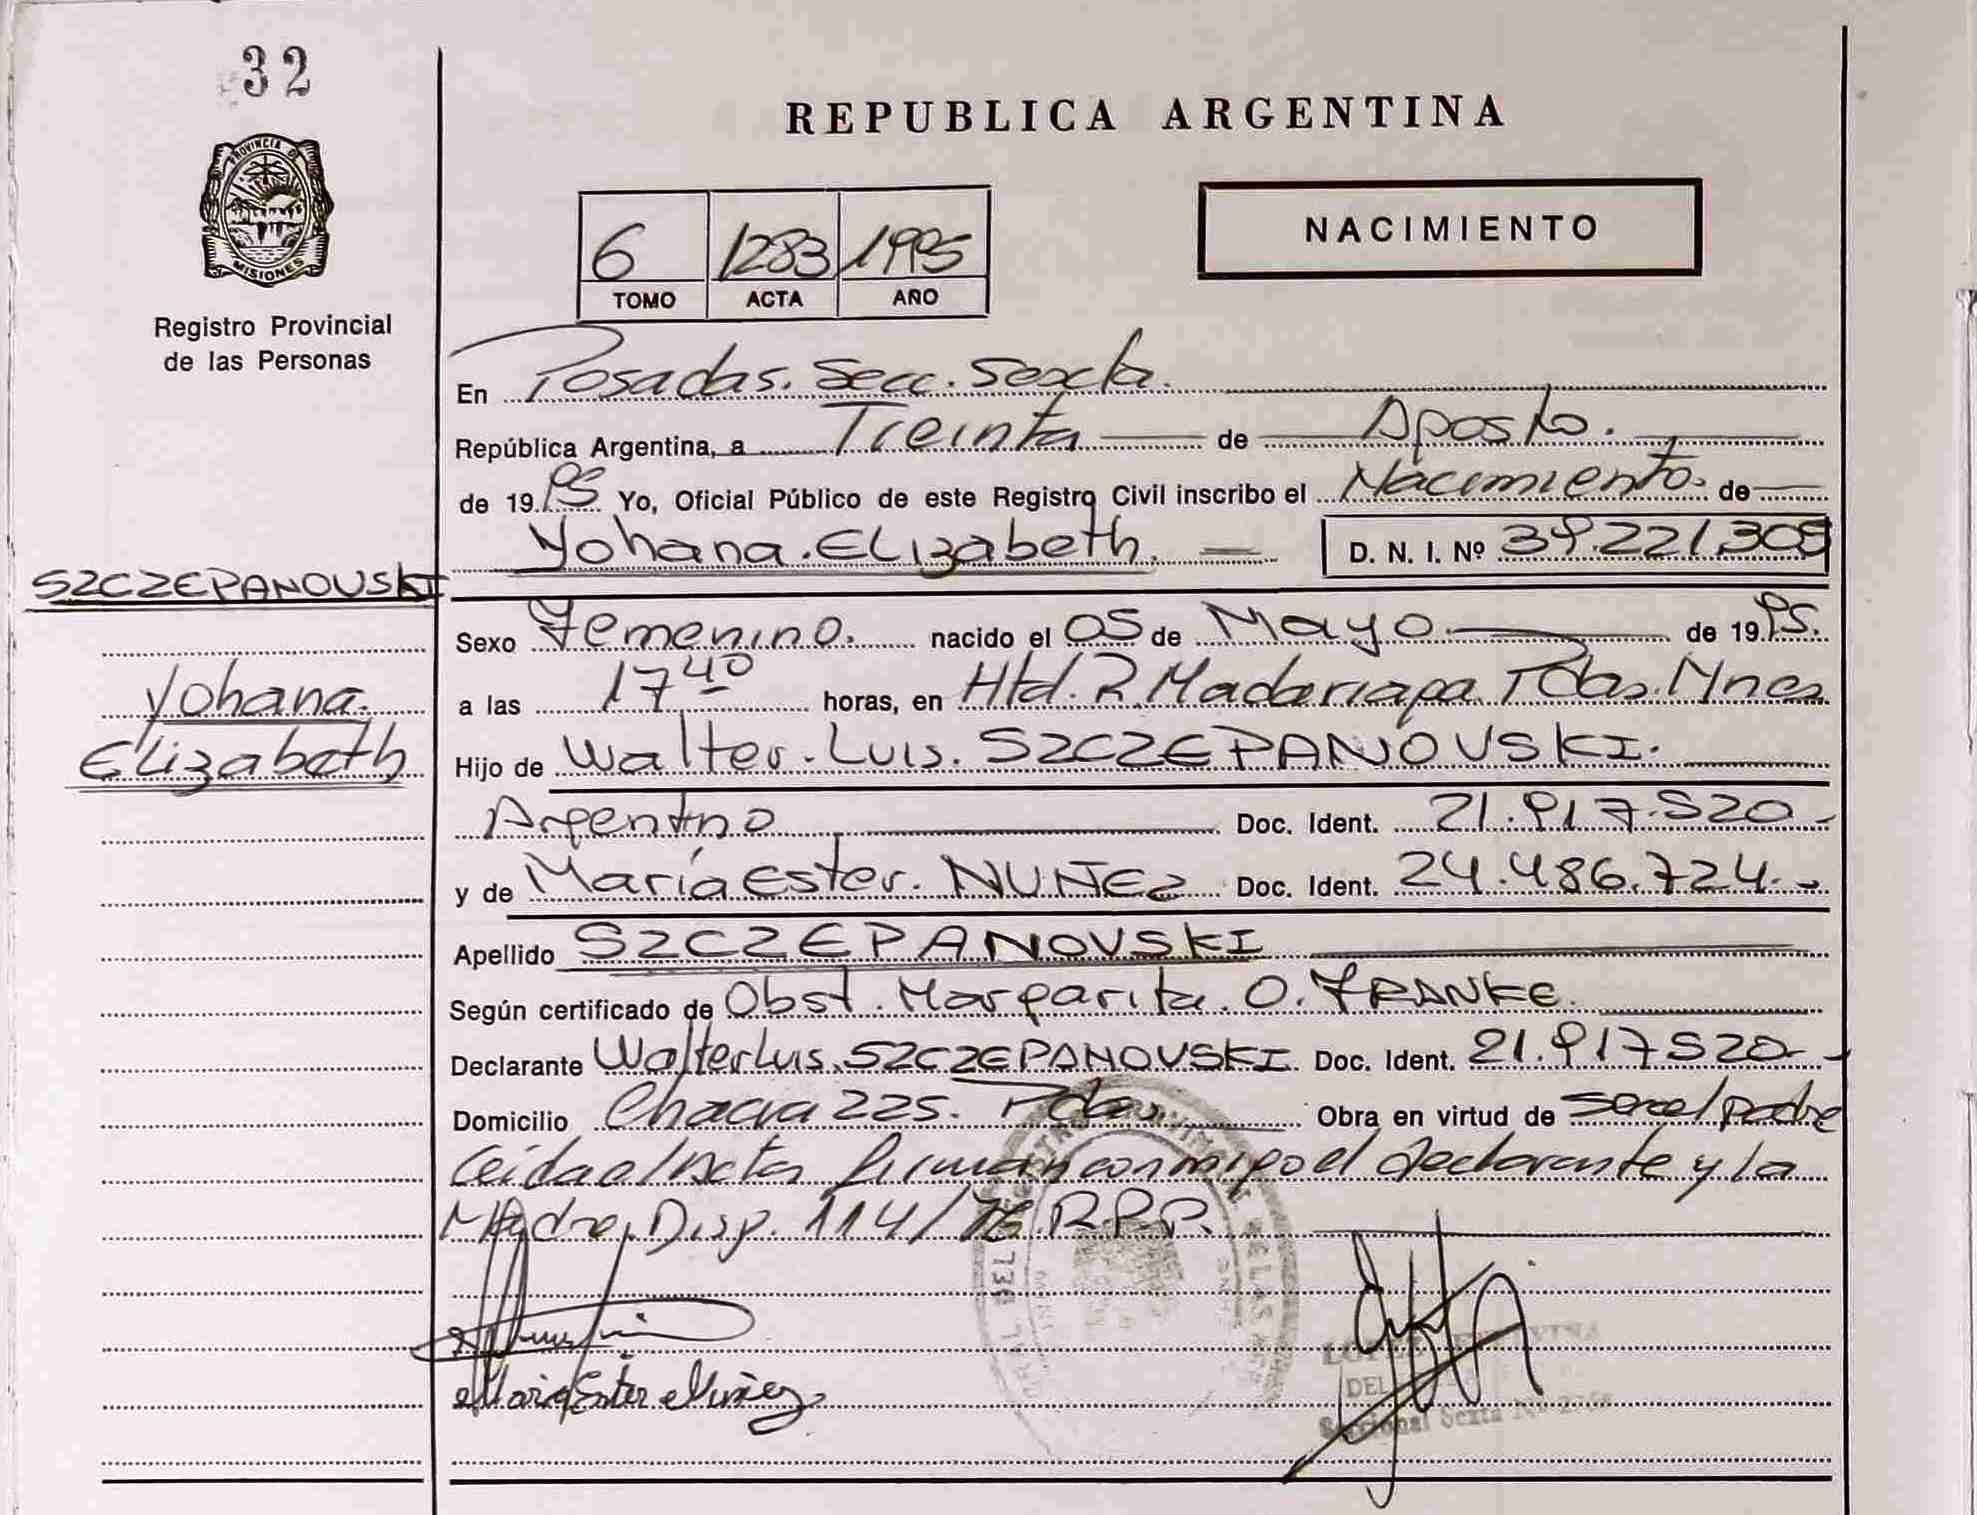 32
PROVINCIA DE
MISIONES
Registro Provincial
de las Personas
SZCZEPANOVSKI
Yohana
Elizabeth
REPUBLICA ARGENTINA
NACIMIENTO
6 1283 1995
TOMO ACTA AÑO
En Posadas. Secc. Sexta.
República Argentina, a Treinta de Agosto.
de 1995 Yo, Oficial Público de este Registro Civil inscribo el Nacimiento. de
Yohana. ELizabeth. D. N. I. Nº 39.221.305
Sexo Femenino. nacido el 05 de Mayo de 1995.
a las 17 40 horas, en Htal. R. Madariaga Pdas. Mnes
Hijo de Walter. Luis. SZCZEPANOVSKI.
Argentino Doc. Ident. 21.917.520
y de María Ester. NUÑEZ Doc. Ident. 24.486.724.
Apellido SZCZEPANOVSKI
Según certificado de Obst. Margarita. O. FRANKE.
Declarante Walter Luis. SZCZEPANOVSKI. Doc. Ident. 21.917520
Domicilio Chacra 225. Pdas. Obra en virtud de ser el padre
Leida el Acta firman conmigo el declarante y la
Madre. Disp. 114/76 R.P.P.
Maria Ester Nuñez
DEL
Seccional Sexta